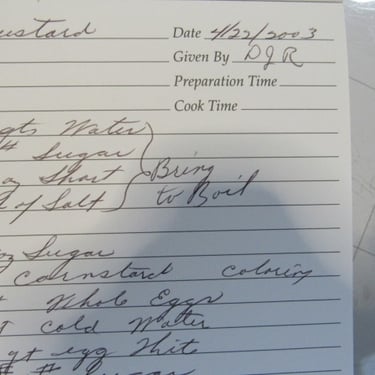 ustard Date 4/22/2003
Given By DJR
Preparation Time
Cook Time
qts Water
# Sugar
oz Short Bring
of Salt to Boil
oz Sugar
Cornstard coloring
Whole Eggs
cold Water
qt egg Hite
# Sugar